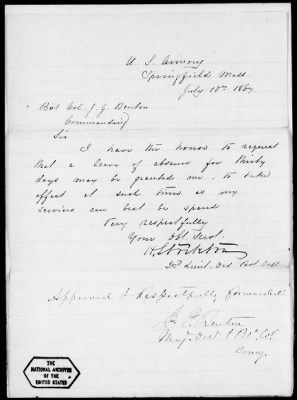 U. S. Armory
Springfield Mass
July 18th 1867
Bvt Col. J. G. Benton
Commanding
Sir
I have the honor to request
that a leave of absence for thirty
days may be granted me. to take
effect at such time as my
services can best be spared
Very respectfully
Your Obt. Servt.
H Stockton
2d Lieut. Ord. Bvt Capt
Approved & Respectfully forwarded
J. G. Benton
Maj. Ord. & Bvt Col.
Comg.
THE
NATIONAL ARCHIVES
OF THE
UNITED STATES